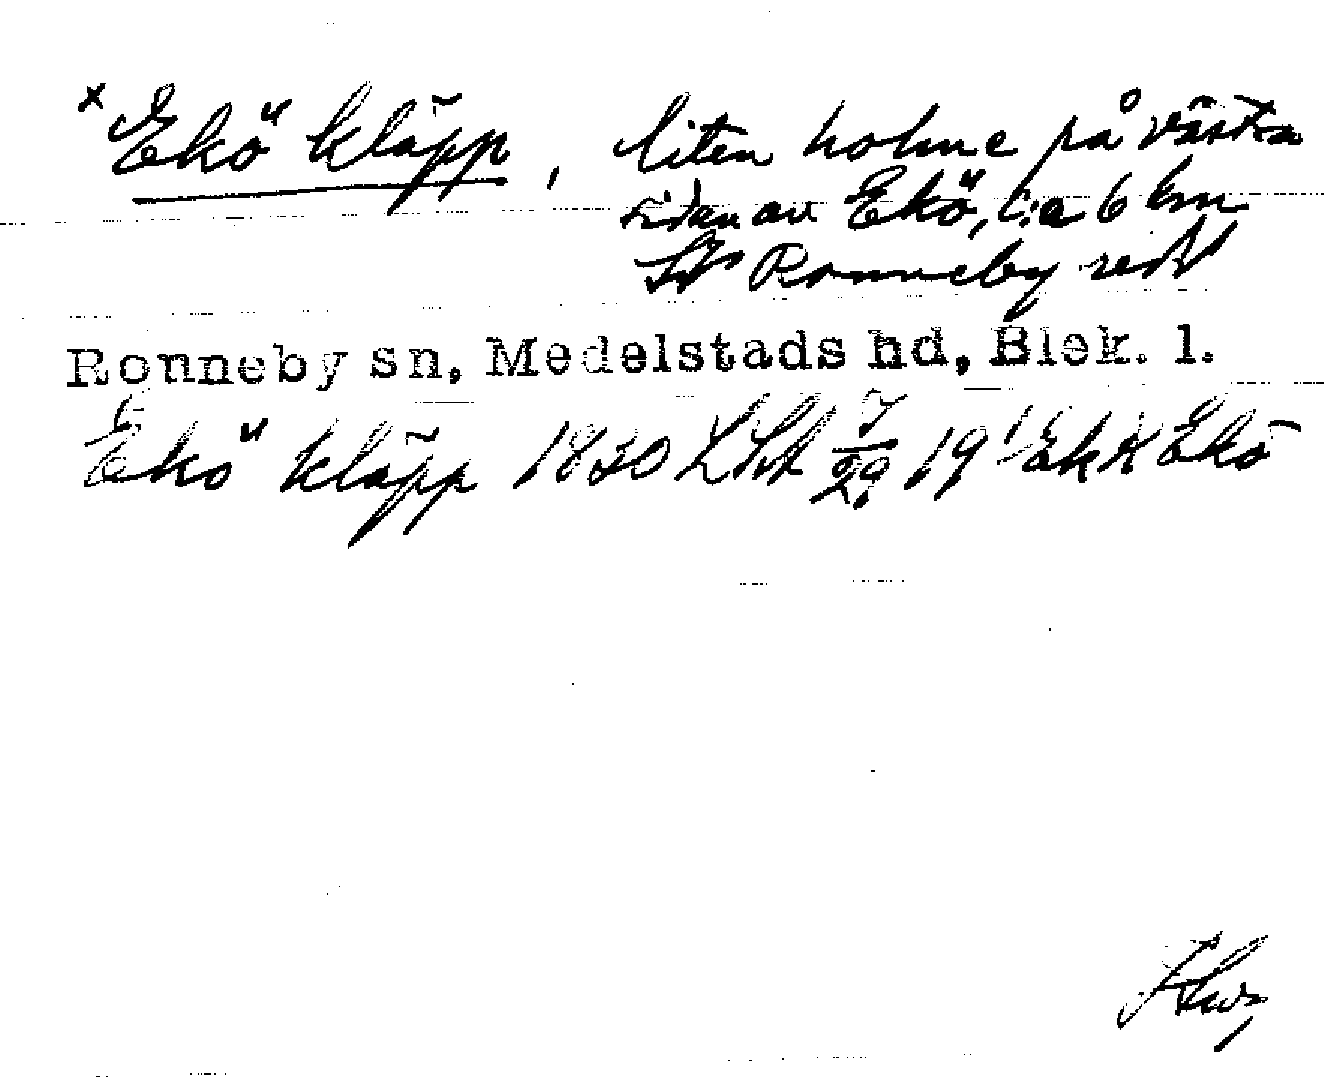 x Ekö kläpp, liten holme på västra
sidan av Ekö, c:a 6 km
Ronneby redd
Ronneby sn, Medelstads hd, Blek. l.
Ekö kläpp 1830 LSA 7/29 19' Ek K Ekö